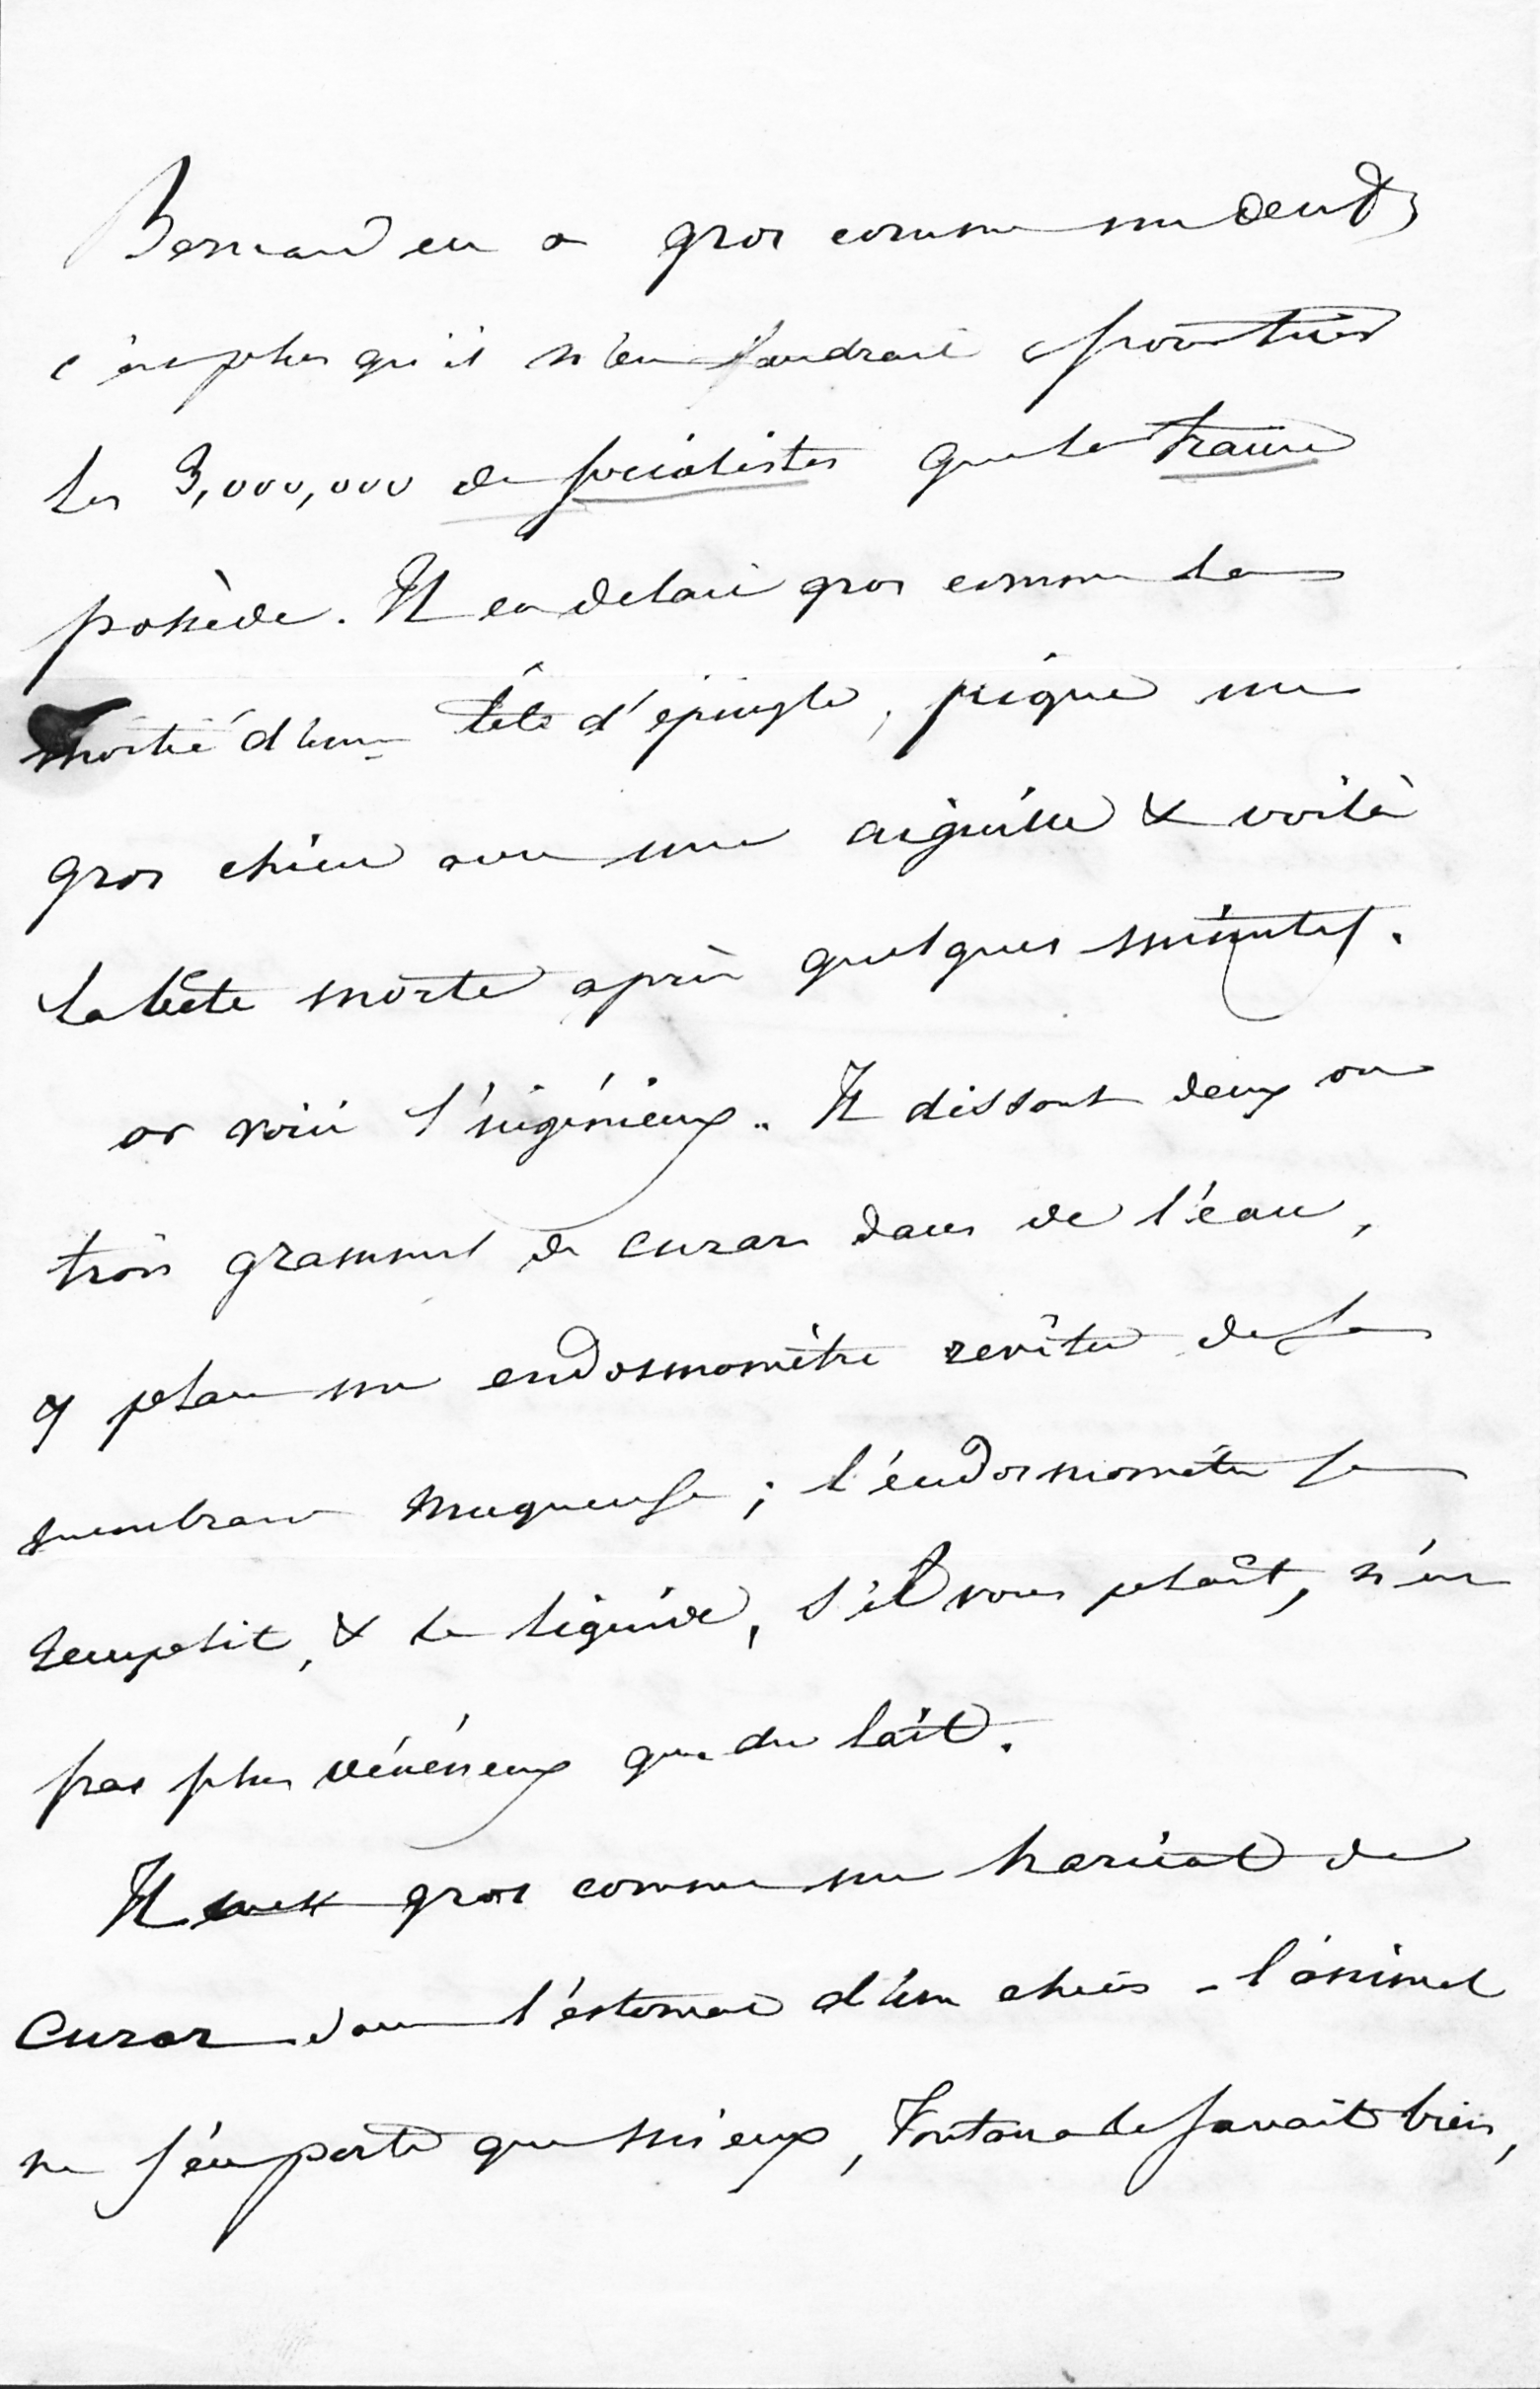 Bernard en a gros comme un œuf,
c'est plus qu'il n'en faudrait pour tuer
les 3,000,000 de socialistes que la france
possède. Il en delaie gros comme la
moitié d'une tête d'épingle, pique un
gros chien avec une aiguille & voilà
la bête morte après quelques minutes.
or voici l'ingénieux. Il dissout deux ou
trois grammes de curare dans de l'eau,
y place un endosmomètre revêtu de sa
membrane muqueuse ; l'endosmomètre se
remplit, & le liquide, s'il vous plaît, n'est
pas plus vénéneux que du lait.
Il met gros comme un haricot de
curar dans l'estomac d'un chien - l'animal
ne s'en porte que mieux, Fontana le savait bien,